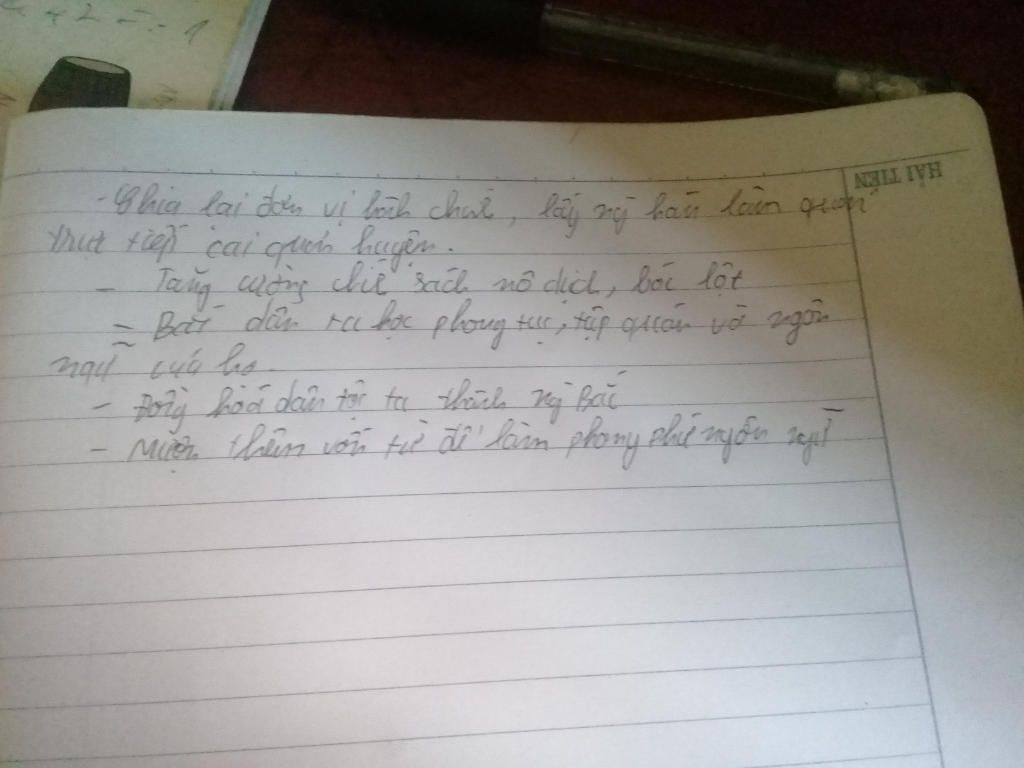 - Chia lại đơn vị hành chính, lấy ng hán làm quan
trực tiếp cai quản huyện.
- Tăng cường chế sách nô dịch, bóc lột
- Bắt dân ta học phong tục, tập quán và ngôn
ngữ của họ.
- Đồng hoá dân tộc ta thành ng Bắc
- Mượn thêm vốn từ để làm phong phú ngôn ngữ
HẢI TIẾN